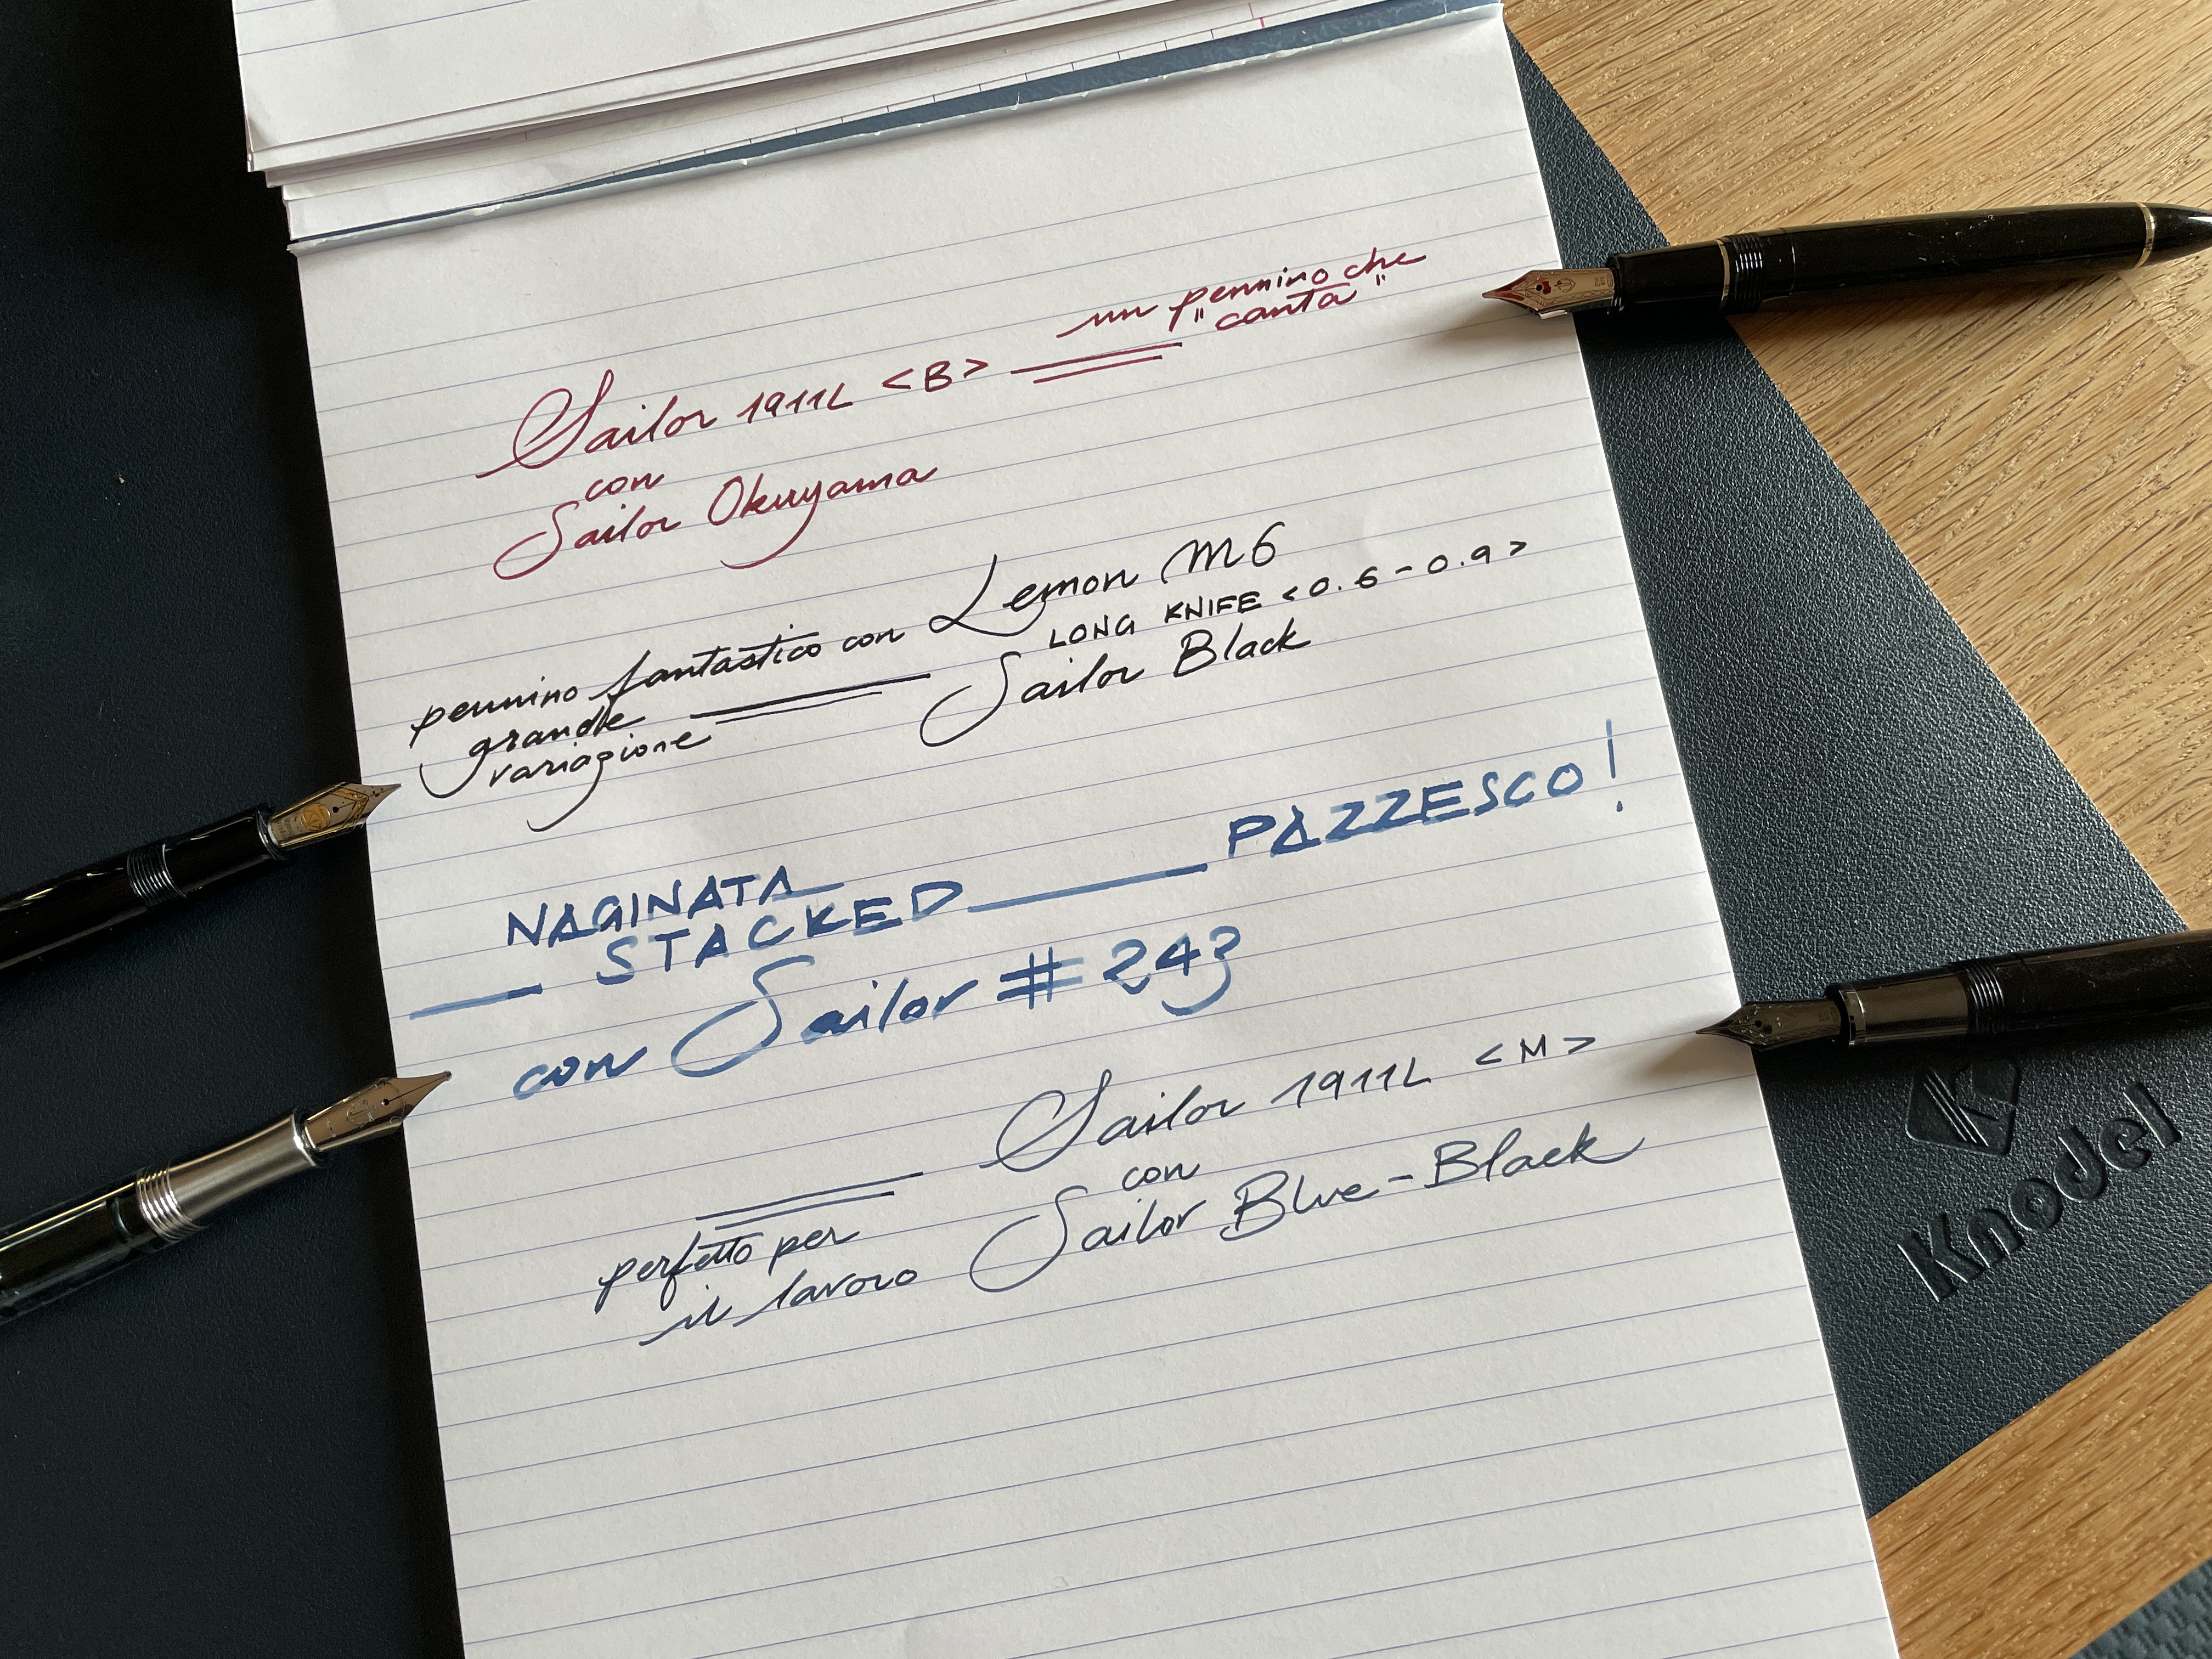 un pennino che
"canta"
Sailor 1911L <B>
con
Sailor Okuyama
Lemon M6
LONG KNIFE <0.6-0.9>
Sailor Black
pennino fantastico con
grande
variazione
PAZZESCO!
NAGINATA
STACKED
con Sailor #243
Sailor 1911L <M>
con
Sailor Blue-Black
perfetto per
il lavoro
K
Knodel